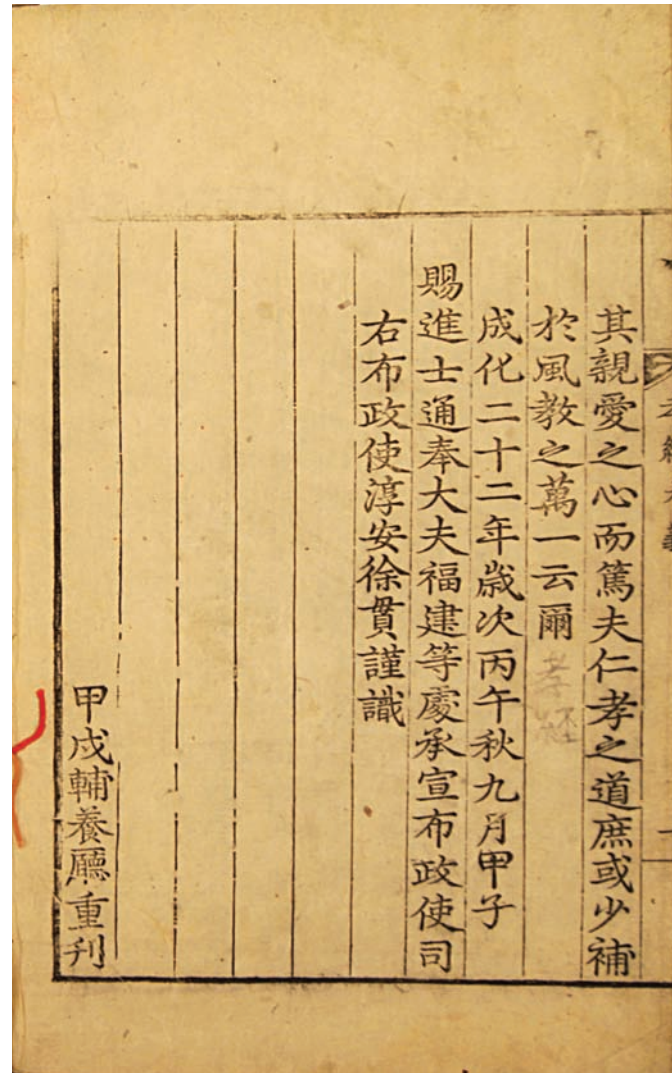 孝經大義
其親愛之心而篤夫仁孝之道庶或少補
於風教之萬一云爾
孝經
成化二十二年歲次丙午秋九月甲子
賜進士通奉大夫福建等處承宣布政使司
右布政使淳安徐貫謹識
甲戌輔養廳重刊